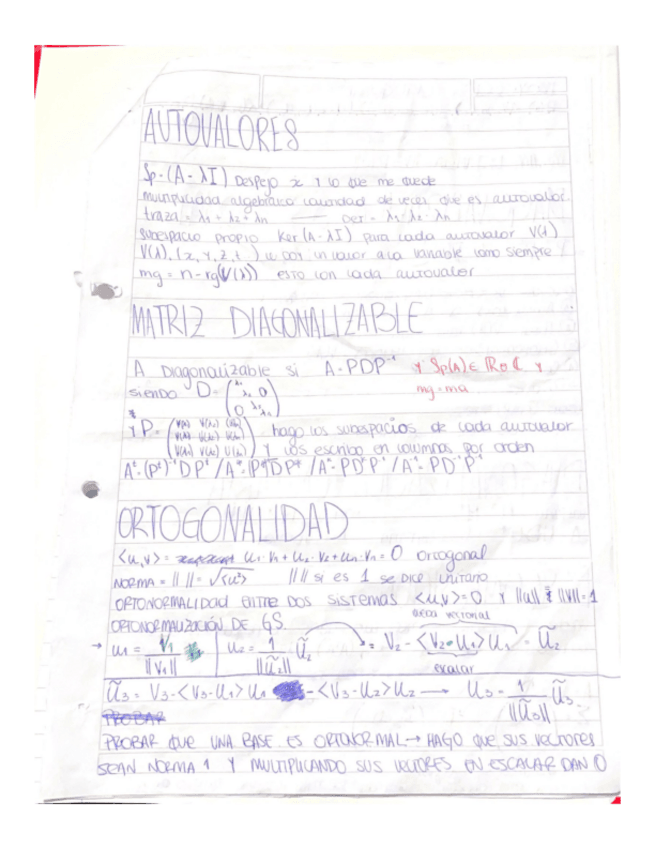 AUTOVALORES
Sp = (A - λI) Despejo x y lo que me quede
multiplicidad algebraica cantidad de veces que es autovalor
traza = λ1 + λ2 + λn —— Det = λ1 · λ2 · λn
subespacio propio Ker (A - λI) para cada autovalor V(λ)
V(λ), (x, y, z, t) le doy un valor a la variable como siempre
mg = n - rg(V(λ)) esto con cada autovalor
MATRIZ DIAGONALIZABLE
A Diagonalizable si A = PDP⁻¹ y Sp(A) ∈ ℝ o ℂ y
siendo D = (λ1 λ2 0 0 λ3 λn) mg = ma
y P = hago los subespacios de cada autovalor
y los escribo en columnas por orden
ORTOGONALIDAD
<u,v> = u1·v1 + u2·v2 + un·vn = 0 ortogonal
NORMA = || || = √<u²> || || si es 1 se dice unitario
ORTONORMALIDAD ENTRE DOS SISTEMAS <u,v> = 0 y ||u|| = ||v|| = 1
ORTONORMALIZACIÓN DE GS
→ u1 = V1 / ||V1|| u2 = 1 / ||ũ2|| ũ2 = V2 - <V2·u1> u1 = ũ2
escalar
ũ3 = V3 - <V3 - u1> u1 - <V3 - u2> u2 → u3 = 1 / ||ũ3|| ũ3
PROBAR
PROBAR QUE UNA BASE ES ORTONORMAL → HAGO QUE SUS VECTORES
SEAN NORMA 1 Y MULTIPLICANDO SUS VECTORES EN ESCALAR DAN 0